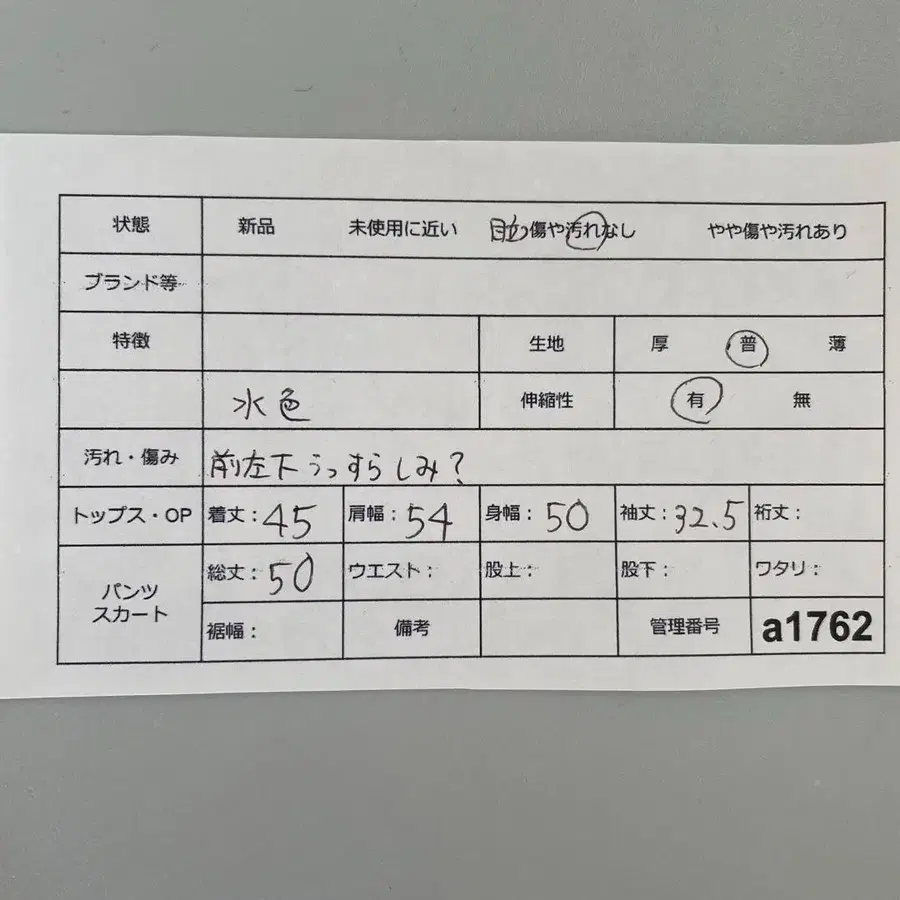 状態 新品 未使用に近い 目立つ傷や汚れなし やや傷や汚れあり
ブランド等
特徴 生地 厚 普 薄
水色 伸縮性 有 無
汚れ・傷み 前左下うっすらしみ?
トップス・OP 着丈:45 肩幅:54 身幅:50 袖丈:32.5 裄丈:
パンツ
スカート
総丈:50 ウエスト: 股上: 股下: ワタリ:
裾幅: 備考 管理番号 a1762